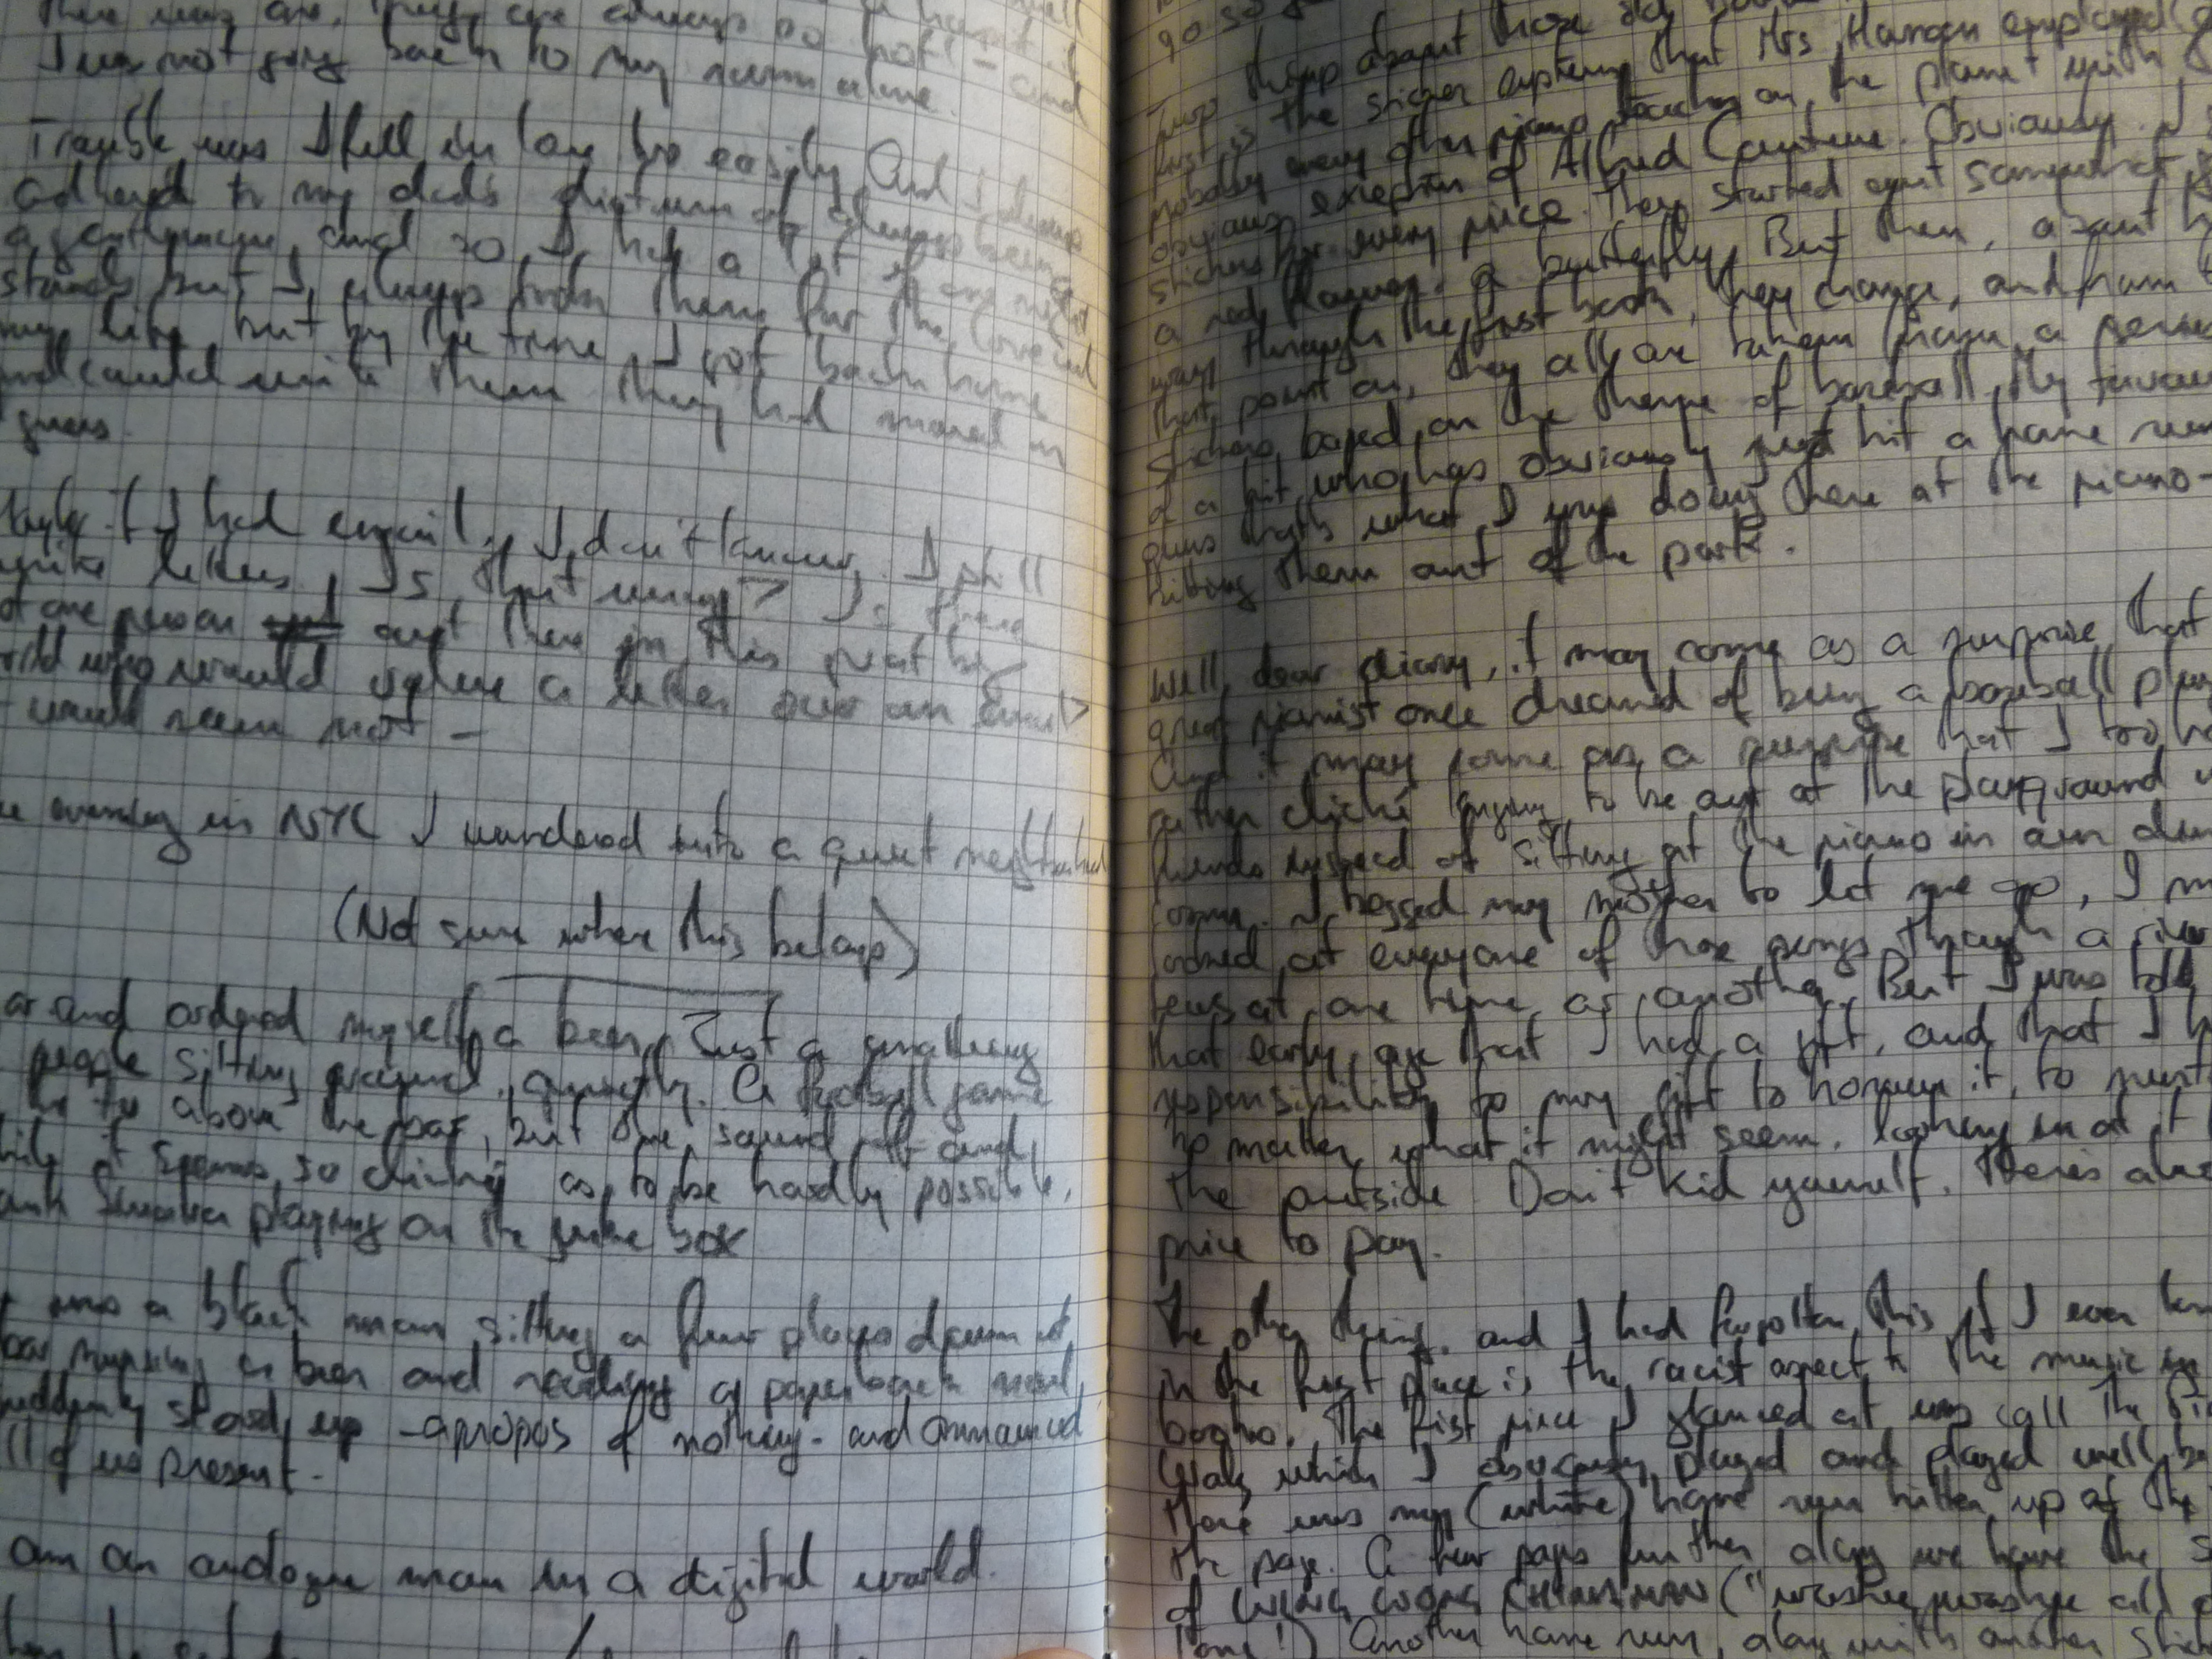 I was not going back to my room alone.
Trouble was I fell in love too easily. And I always
adhered to my dad's dictum of always being
a gentleman, and so I had a lot of one night
stands but I always took them for the love of
my life, but by the time I got back home
and could write them they had moved on
guess.
Maybe if I had email, I don't know. I still
write letters. Is that wrong? Is there
not one person out there in this great big
world who would value a letter over an email?
would seem not -
evening in NYC I wandered into a quiet neighborhood
(Not sure where this belongs)
and ordered myself a beer. Just a smattering
people sitting around, quietly. A football game
the TV above the bar, but the sound off and,
it seems so clichéd as to be hardly possible,
Sinatra playing on the juke box
was a black man sitting a few places down at
bar nursing a beer and reading a paperback novel
suddenly stood up - apropos of nothing - and announced
all of us present -
am an analogue man in a digital world.
go so
Two things about those old
first is the sticker system that Mrs. Haman employed
probably every other piano teacher on the planet with
obvious exception of Alfred Cantime. Obviously. I
stickers for every piece. They started out somewhat
a red flower, a butterfly. But then, about
way through the first book, they change, and from
that point on, they all are taken from a series
stickers based on the theme of baseball. My favourite
of a kid who has obviously just hit a home run
guess that's what I was doing there at the piano -
hitting them out of the park.
Well, dear diary, it may come as a surprise that
great pianist once dreamed of being a baseball
And it may come as a surprise that I too
rather cliché longing to be out at the playground
friends instead of sitting at the piano in our
I begged my mother to let me go, I
looked at everyone of those pages through a river
tears at one time or another. But I was told
that early age that I had a gift, and that I
responsibility to my gift to honour it, to
no matter what it might seem, looking in at it
the outside. Don't kid yourself. There's
price to pay.
The other thing, and I had forgotten this if I ever
in the first place is the racist aspect to the music in
books. The first piece I glanced at was call the
which I obviously played and played well,
there was my (white) home run hitter up at the
the page. A few pages further along we have the
of CHING CHONG CHINAMAN ("washee washee all
Another home run, along with another